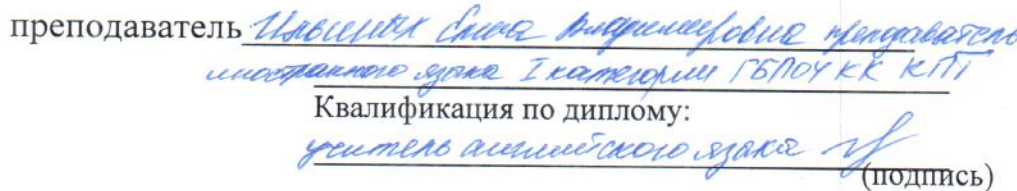 преподаватель Елена Владимировна преподаватель
иностранного языка I категории ГБПОУ КК КПТ
Квалификация по диплому:
учитель английского языка
(подпись)